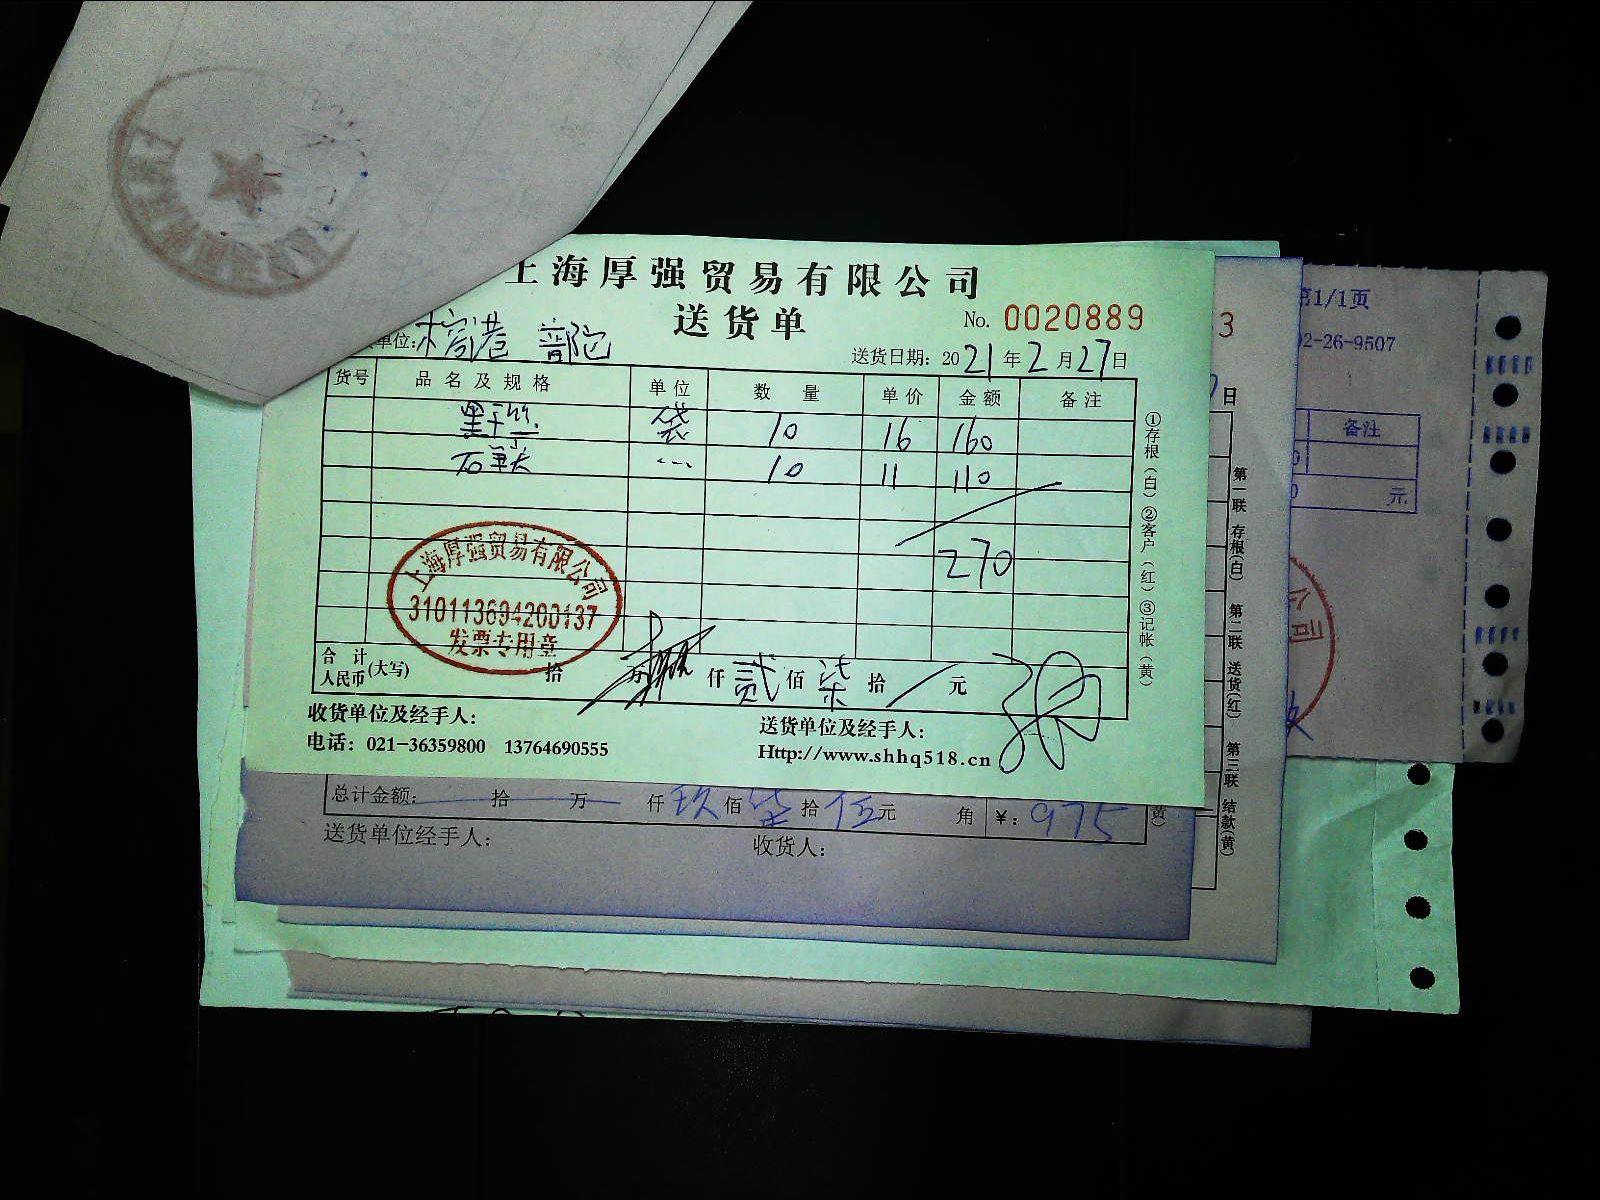 上海厚强贸易有限公司
送货单
No. 0020889
单位:
送货日期: 2021年2月27日
货号 品名及规格 单位 数量 单价 金额 备注
袋 10 16 160
10 11 110
270
上海厚强贸易有限公司
310113694200137
发票专用章
合计
人民币(大写) 拾 仟贰佰柒拾 元
收货单位及经手人:
送货单位及经手人:
电话: 021-36359800 13764690555
Http://www.shhq518.cn
①存根(白)②客户(红)③记帐(黄)
总计金额: 拾 万 仟玖佰柒拾伍元 角 ¥: 975
送货单位经手人:
收货人:
(黄)
3
日
第一联 存根(白) 第二联 送货(红) 第三联 结款(黄)
第1/1页
02-26-9507
备注
元
公司